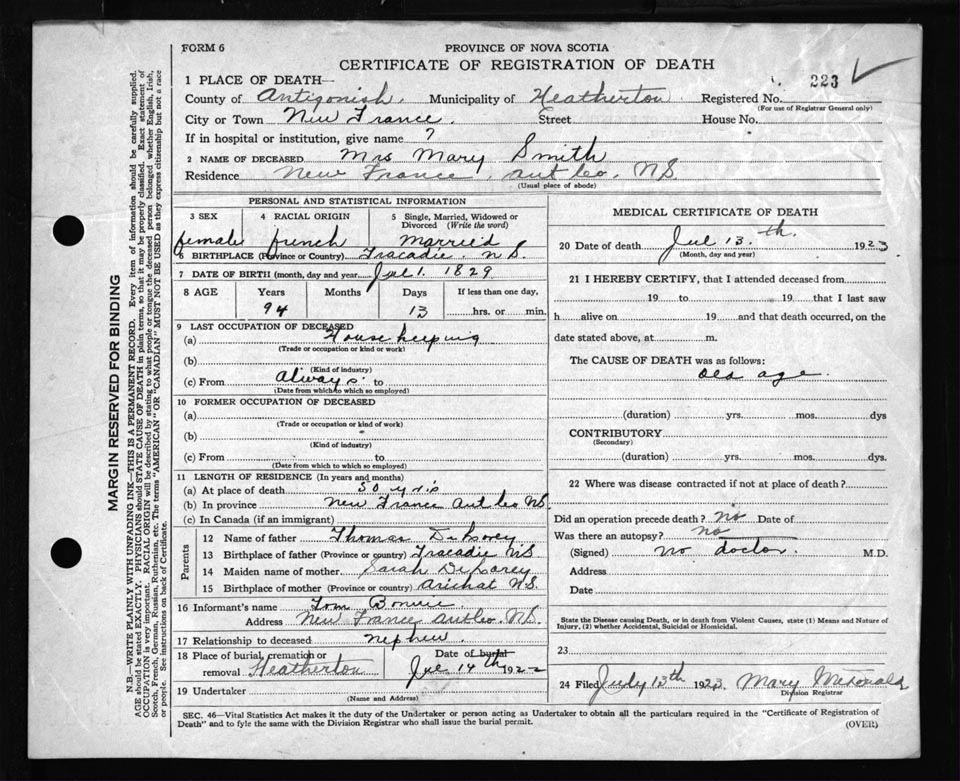 FORM 6
PROVINCE OF NOVA SCOTIA
CERTIFICATE OF REGISTRATION OF DEATH
223
1 PLACE OF DEATH—
County of Antigonish. Municipality of Heatherton Registered No.
(For use of Registrar General only)
City or Town New France. Street House No.
If in hospital or institution, give name ?
2 NAME OF DECEASED Mrs Mary Smith
Residence New France. Ant Co. N.S.
(Usual place of abode)
PERSONAL AND STATISTICAL INFORMATION
3 SEX 4 RACIAL ORIGIN 5 Single, Married, Widowed or Divorced (Write the word)
female french Married
6 BIRTHPLACE (Province or Country) Tracadie. N S.
7 DATE OF BIRTH (month, day and year) Jul 1. 1829
8 AGE Years Months Days If less than one day,
94 13 hrs. or min.
9 LAST OCCUPATION OF DECEASED
(a) House keeping
(Trade or occupation or kind of work)
(b)
(Kind of industry)
(c) From always to
(Date from which to which so employed)
10 FORMER OCCUPATION OF DECEASED
(a)
(Trade or occupation or kind of work)
(b)
(Kind of industry)
(c) From to
(Date from which to which so employed)
11 LENGTH OF RESIDENCE (In years and months)
(a) At place of death 50 yrs
(b) In province New France Ant Co NS.
(c) In Canada (if an immigrant)
Parents
12 Name of father Thomas
13 Birthplace of father (Province or country) Tracadie NS
14 Maiden name of mother Sarah
15 Birthplace of mother (Province or Country) Arichat N.S.
16 Informant's name Tom
Address New France Ant Co. N.S.
17 Relationship to deceased nephew.
18 Place of burial, cremation or removal Heatherton Date of burial Jul 14th 1922
19 Undertaker
(Name and Address)
MEDICAL CERTIFICATE OF DEATH
20 Date of death Jul 13.th 1923
(Month, day and year)
21 I HEREBY CERTIFY, that I attended deceased from
19 to 19 that I last saw
h alive on 19 and that death occurred, on the
date stated above, at m.
The CAUSE OF DEATH was as follows:
old age.
(duration) yrs. mos. dys
CONTRIBUTORY
(Secondary)
(duration) yrs. mos. dys.
22 Where was disease contracted if not at place of death?
Did an operation precede death? No Date of
Was there an autopsy? No
(Signed) no doctor. M.D.
Address
Date
State the Disease causing Death, or in death from Violent Causes, state (1) Means and Nature of
Injury, (2) whether Accidental, Suicidal or Homicidal.
23
24 Filed July 13th 1923 Mary McDonald
Division Registrar
SEC. 46—Vital Statistics Act makes it the duty of the Undertaker or person acting as Undertaker to obtain all the particulars required in the "Certificate of Registration of
Death" and to fyle the same with the Division Registrar who shall issue the burial permit.
(OVER)
MARGIN RESERVED FOR BINDING
N.B.—WRITE PLAINLY WITH UNFADING INK—THIS IS A PERMANENT RECORD. Every item of information should be carefully supplied.
AGE should be stated EXACTLY. PHYSICIANS should STATE CAUSE OF DEATH in plain terms, so that it may be properly classified. Exact statement of
OCCUPATION is very important. RACIAL ORIGIN will be described by stating to what people or tongue the deceased person belonged whether English, Irish,
Scotch, French, German, Russian, Ruthenian, etc. The terms "AMERICAN" OR "CANADIAN" MUST NOT BE USED as they express citizenship but not a race
or people. See instructions on back of Certificate.